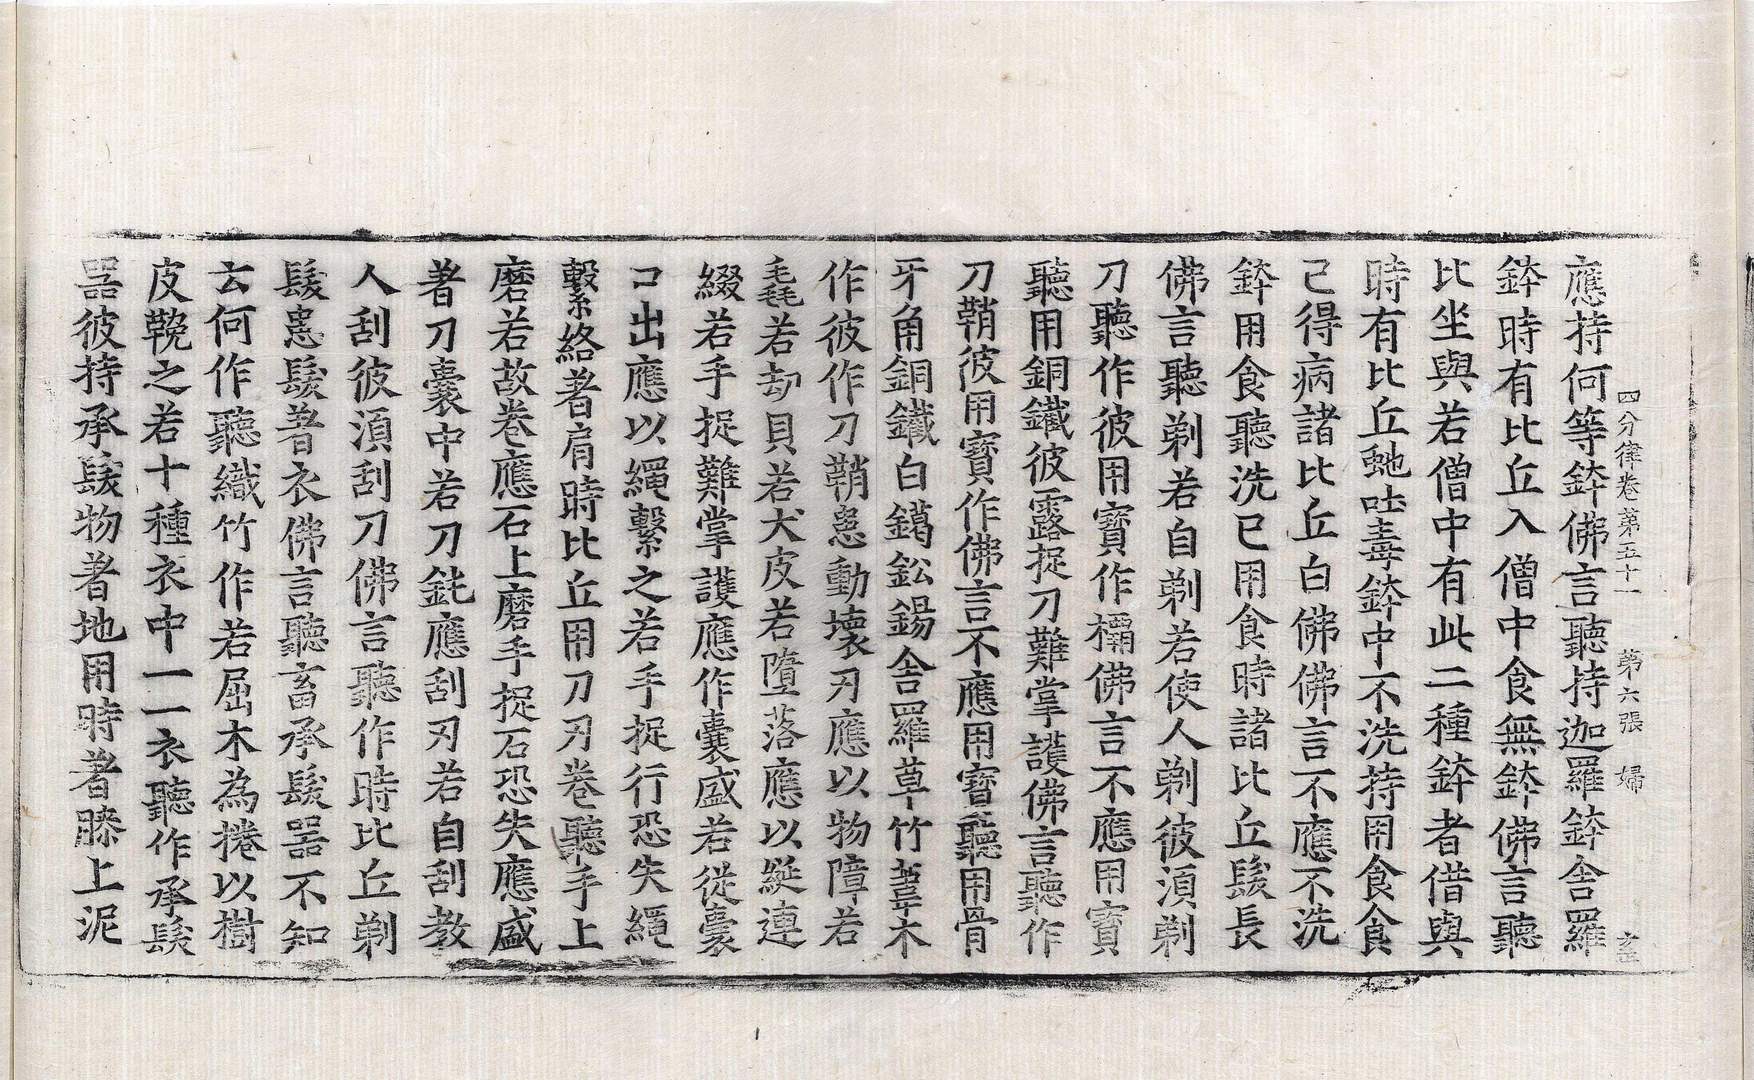 四分律卷第五十一 第六張 婦 玄
應持何等鉢佛言聽持迦羅鉢舍羅
鉢時有比丘入僧中食無鉢佛言聽
比坐與若僧中有此二種鉢者借與
時有比丘虵吐毒鉢中不洗持用食食
已得病諸比丘白佛佛言不應不洗
鉢用食聽洗已用食時諸比丘髮長
佛言聽剃若自剃若使人剃彼須剃
刀聽作彼用寶作欛佛言不應用寶
聽用銅鐵彼露捉刀難掌護佛言聽作
刀鞘彼用寶作佛言不應用寶聽用骨
牙角銅鐵白鑞鈆錫舍羅草竹葦木
作彼作刀鞘患動壞刃應以物障若
毳若劫貝若犬皮若墮落應以綖連
綴若手捉難掌護應作囊盛若從囊
口出應以繩繫之若手捉行恐失繩
繫絡著肩時比丘用刀刃卷聽手上
磨若故卷應石上磨手捉石恐失應盛
著刀囊中若刀鈍應刮刃若自刮教
人刮彼須刮刀佛言聽作時比丘剃
髮患髮著衣佛言聽畜承髮器不知
云何作聽織竹作若屈木為捲以樹
皮鞔之若十種衣中一一衣聽作承髮
器彼持承髮物著地用時著膝上泥